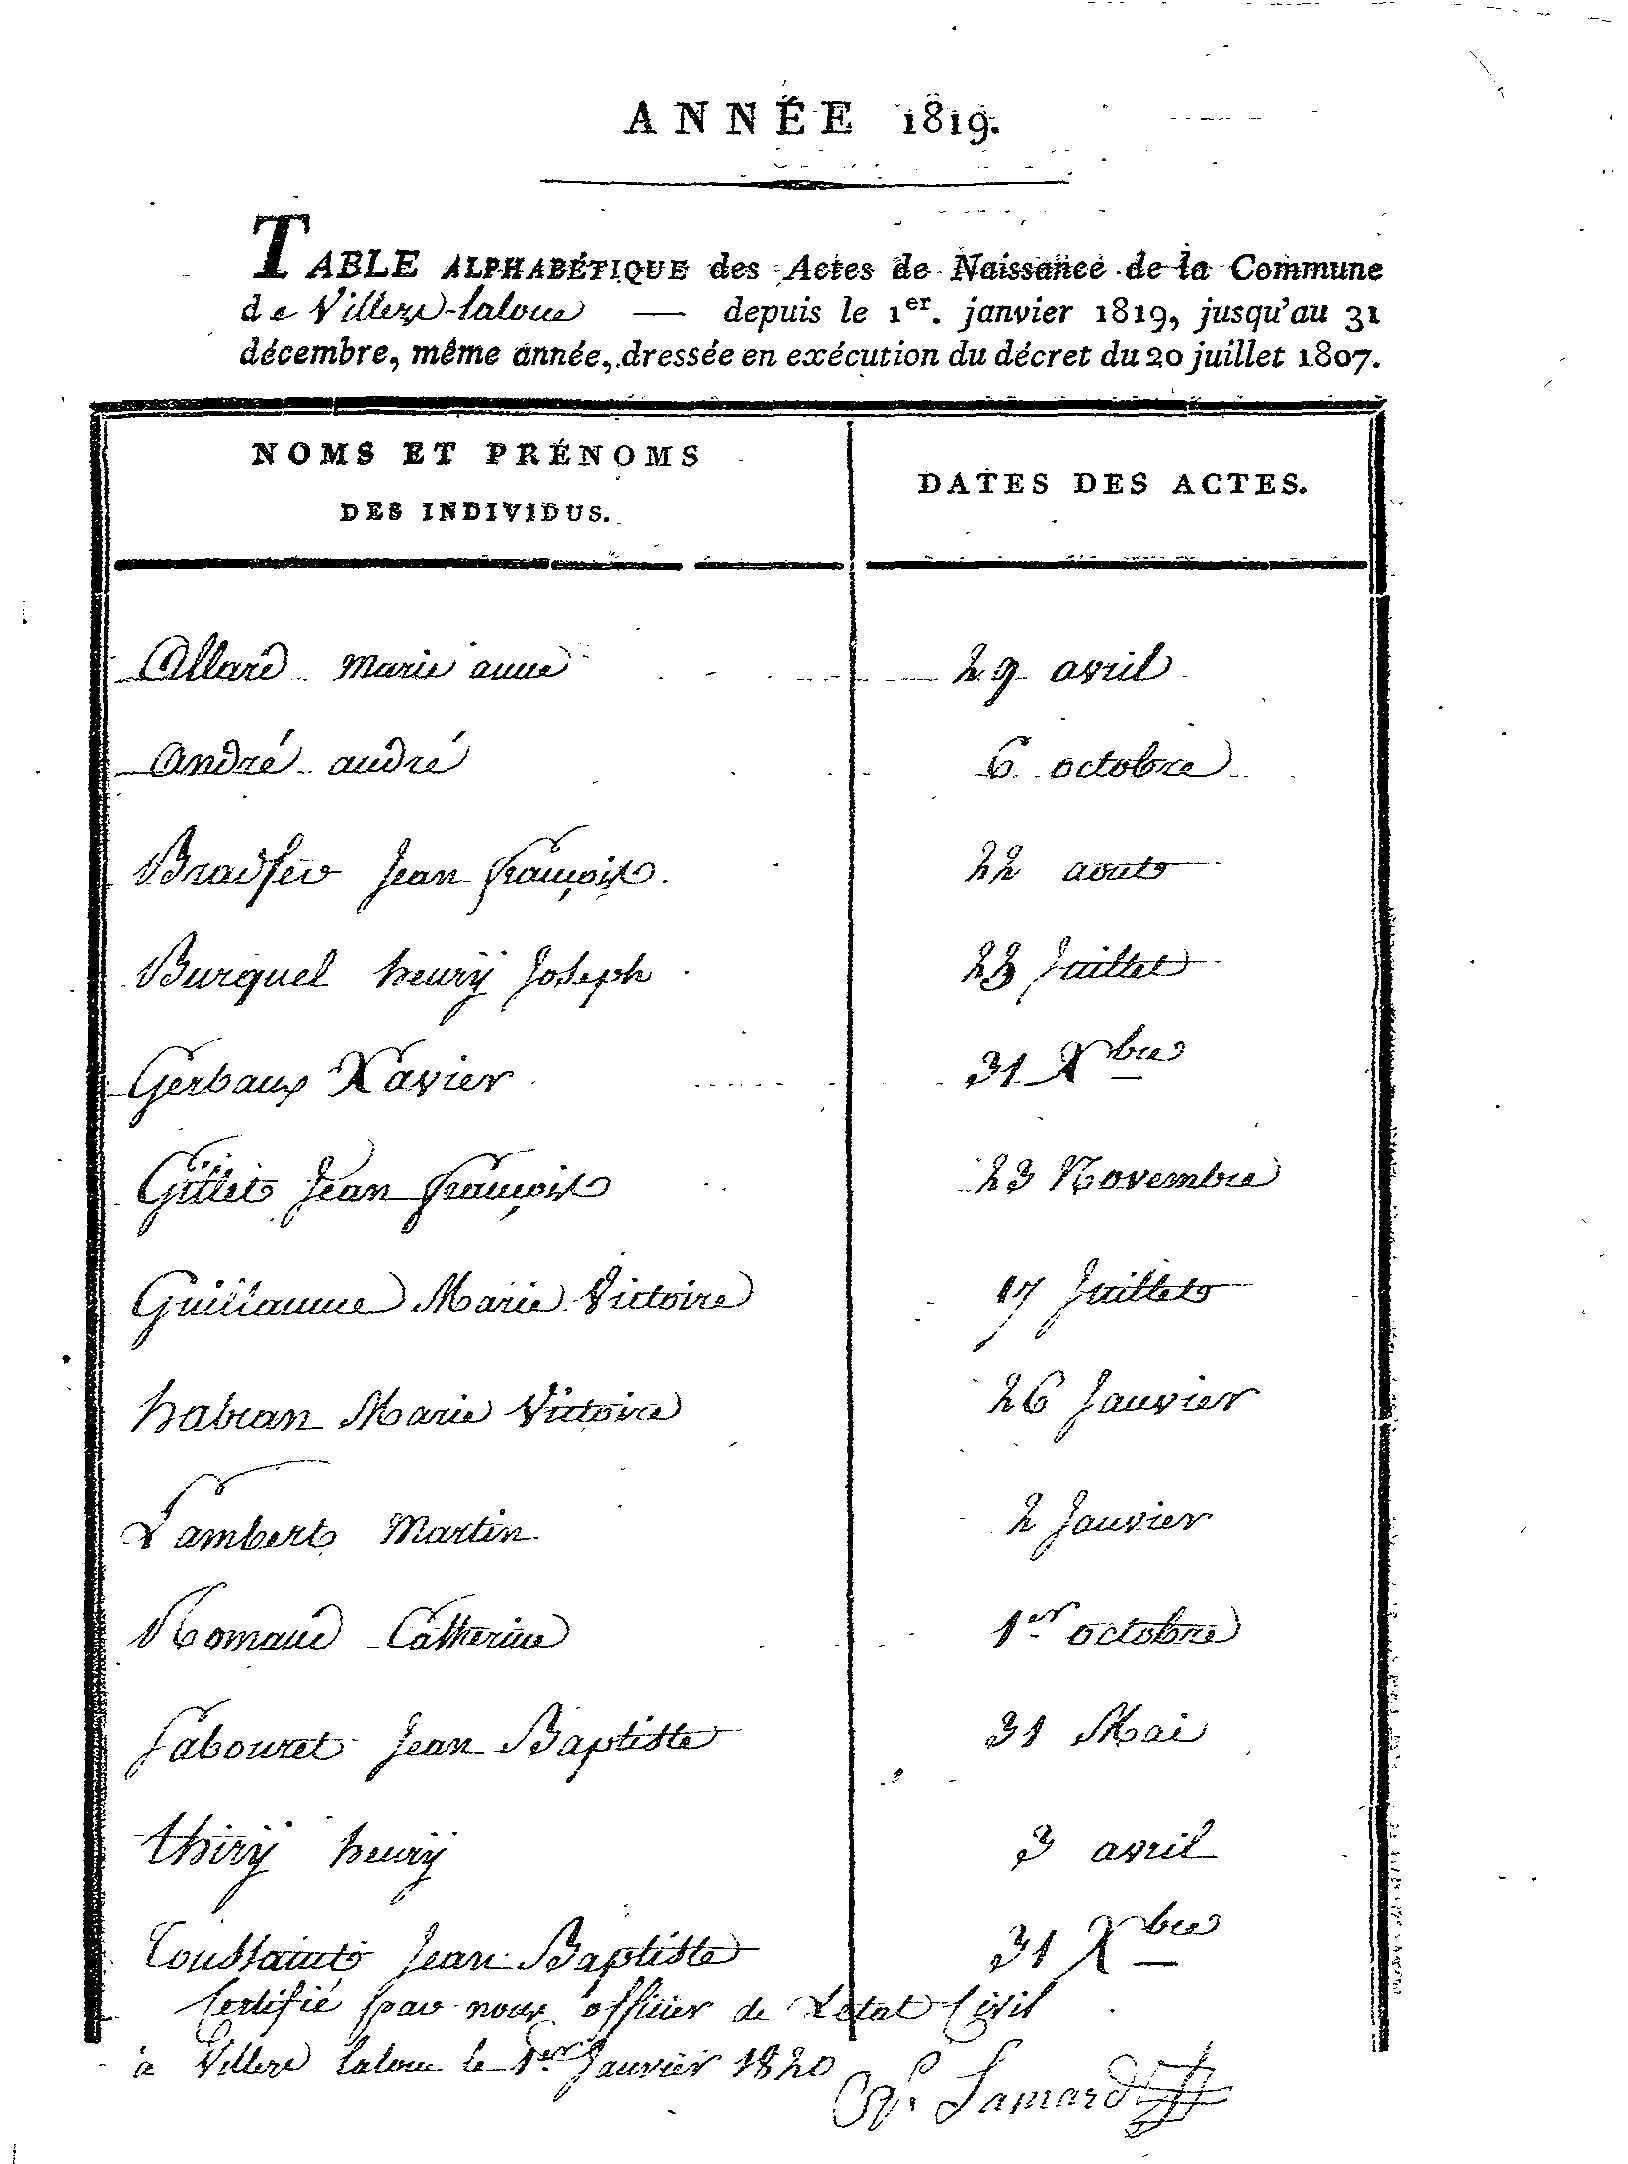 ANNÉE 1819.
TABLE ALPHABÉTIQUE des Actes de Naissance de la Commune
de Villers-laloue — depuis le 1er. janvier 1819, jusqu'au 31
décembre, même année, dressée en exécution du décret du 20 juillet 1807.
NOMS ET PRÉNOMS
DES INDIVIDUS.
DATES DES ACTES.
Allard marie anne 29 avril
André andré 6 octobre
Bradfer Jean françois. 22 aout
Burquel henrÿ Joseph 23 Juillet
Gerbaux Xavier 31 Xbre
Gillet Jean françois 23 Novembre
Guillaume Marie Victoire 17 Juillet
habran Marie Victoire 26 Janvier
Lambert Martin 2 Janvier
Romand Catherine 1er octobre
Sabouret Jean Baptiste 31 Mai
thirÿ henrÿ 3 avril
Toussaint Jean Baptiste 31 Xbre
Certifié par nous officier de Letat Civil
à Villers laloue le 1er Janvier 1820
Lamard